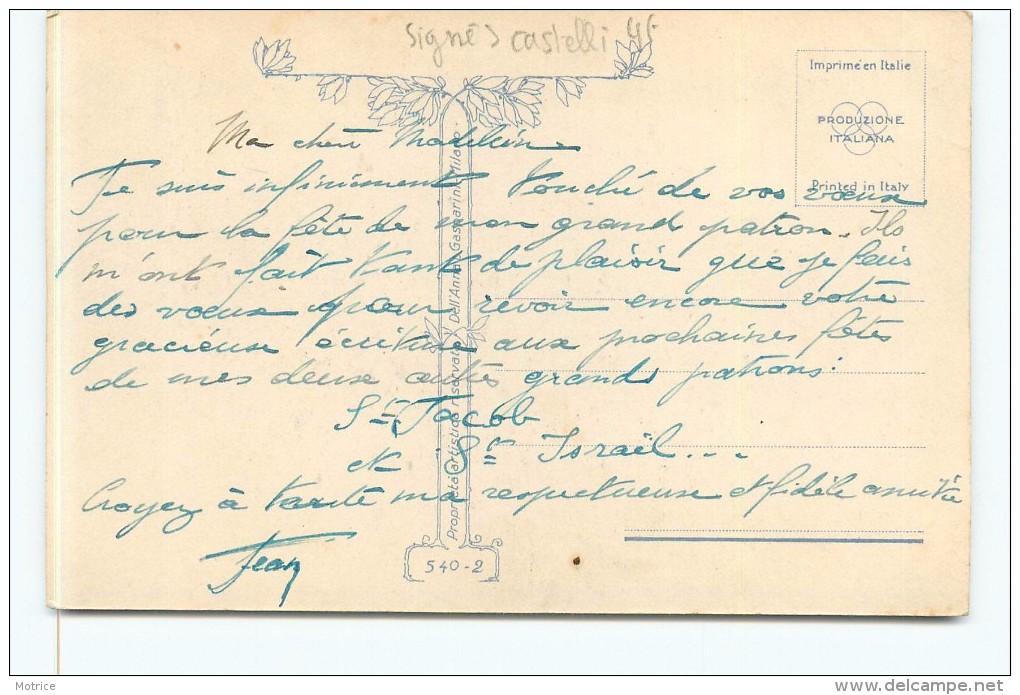 Signé Castelli 45
Imprimé en Italie
PRODUZIONE
ITALIANA
Printed in Italy
Ma chère Madeleine
Je suis infiniment touché de vos vœux
pour la fête de mon grand patron. Ils
m'ont fait tant de plaisir que je fais
des vœux pour revoir encore votre
gracieuse écriture aux prochaines fêtes
de mes deux autres grands patrons:
St Jacob
et St Israël...
Croyez à toute ma respectueuse et fidèle amitié
Jean
Proprietà artistica riservata Dell'Anna Gasparini Milano
540-2
Motrice
www.delcampe.net